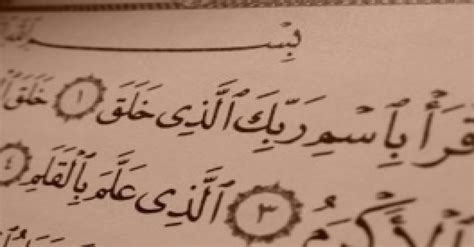 بِسْمِ
قْرَأْ بِٱسْمِ رَبِّكَ ٱلَّذِى خَلَقَ ١ خَلَقَ
ٱلْأَكْرَمُ ٣ ٱلَّذِى عَلَّمَ بِٱلْقَلَمِ ٤